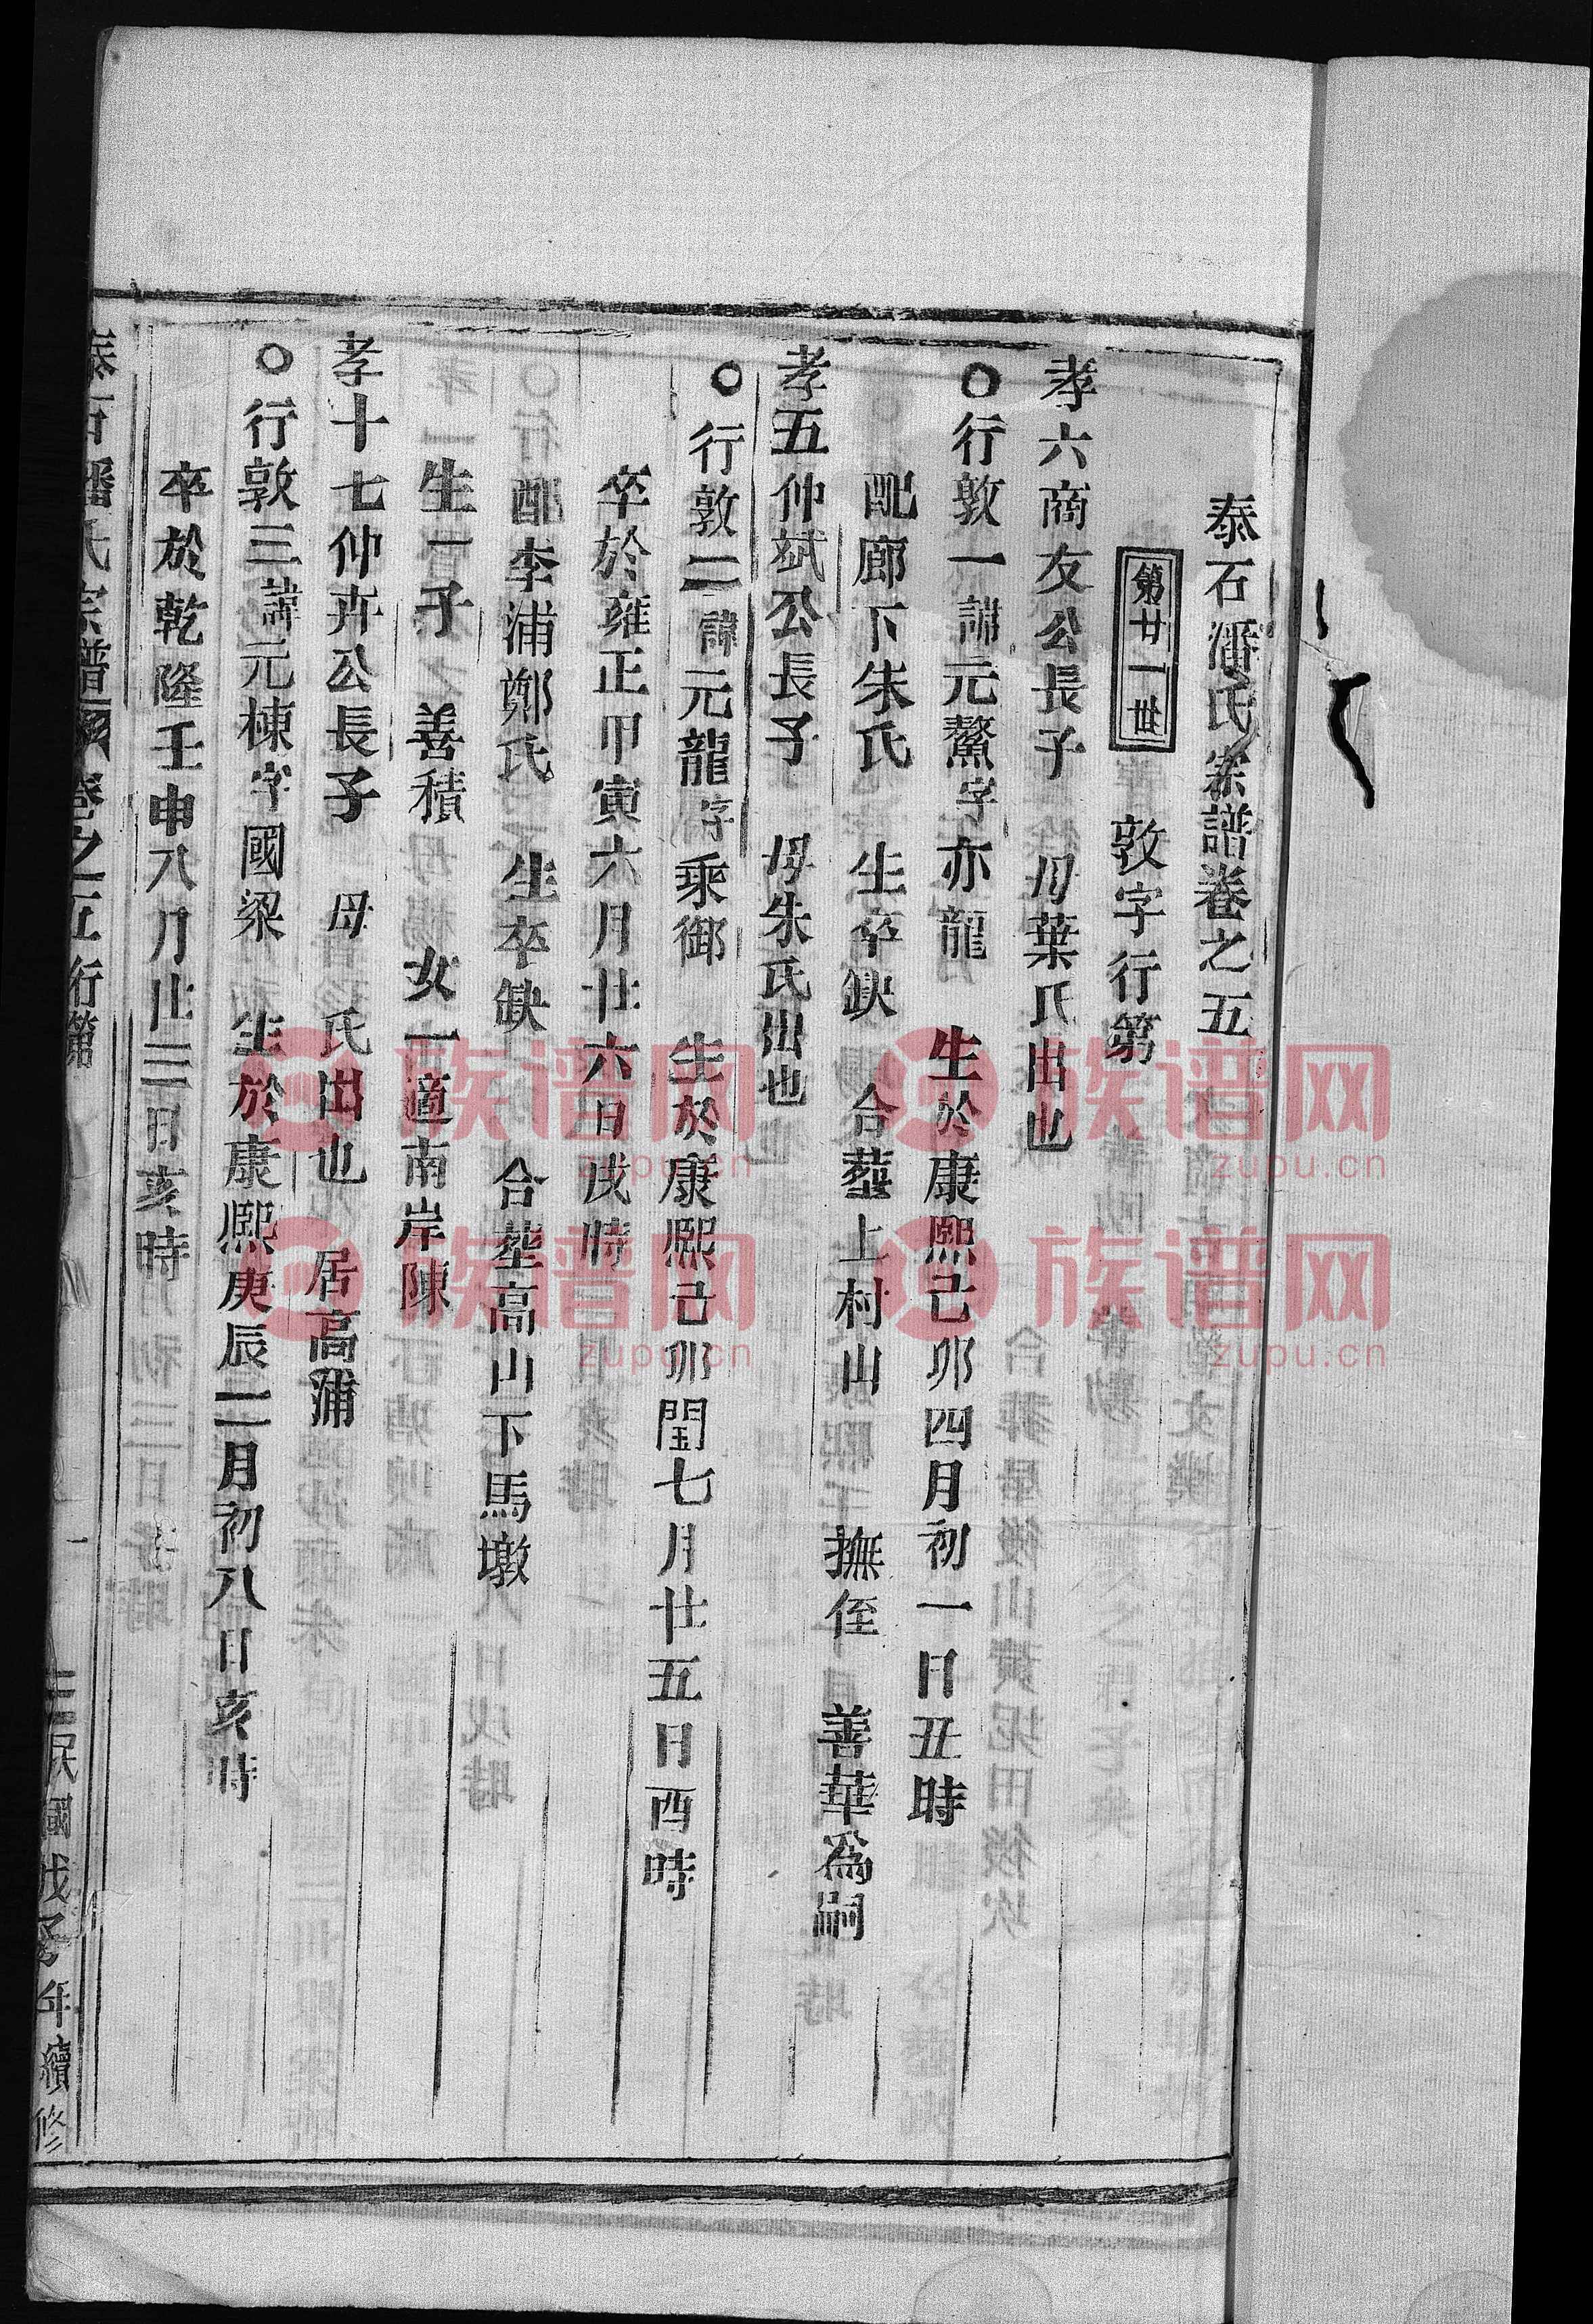 泰石潘氏宗譜卷之五
第廿一世 敦字行第
孝六商友公長子 母葉氏出也
○行敦一諱元鰲字亦龍 生於康熙己卯四月初一日丑時
配廊下朱氏 生卒缺 合葬上村山 撫侄 善華爲嗣
孝五仲斌公長子 母朱氏出也
○行敦二諱元龍字乘御 生於康熙己卯閏七月廿五日酉時
卒於雍正甲寅六月廿六日戌時
配李浦鄭氏 生卒缺 合葬高山下馬墩
生一子 善積 女一適南岸陳
孝十七仲卉公長子 母 氏出也 居高浦
○行敦三諱元棟字國梁 生於康熙庚辰二月初八日亥時
卒於乾隆壬申八月廿三日亥時
泰石潘氏宗譜 卷之五行第 一 民國戊子年續修
族谱网 zupu.cn
族谱网 zupu.cn
族谱网 zupu.cn
族谱网 zupu.cn